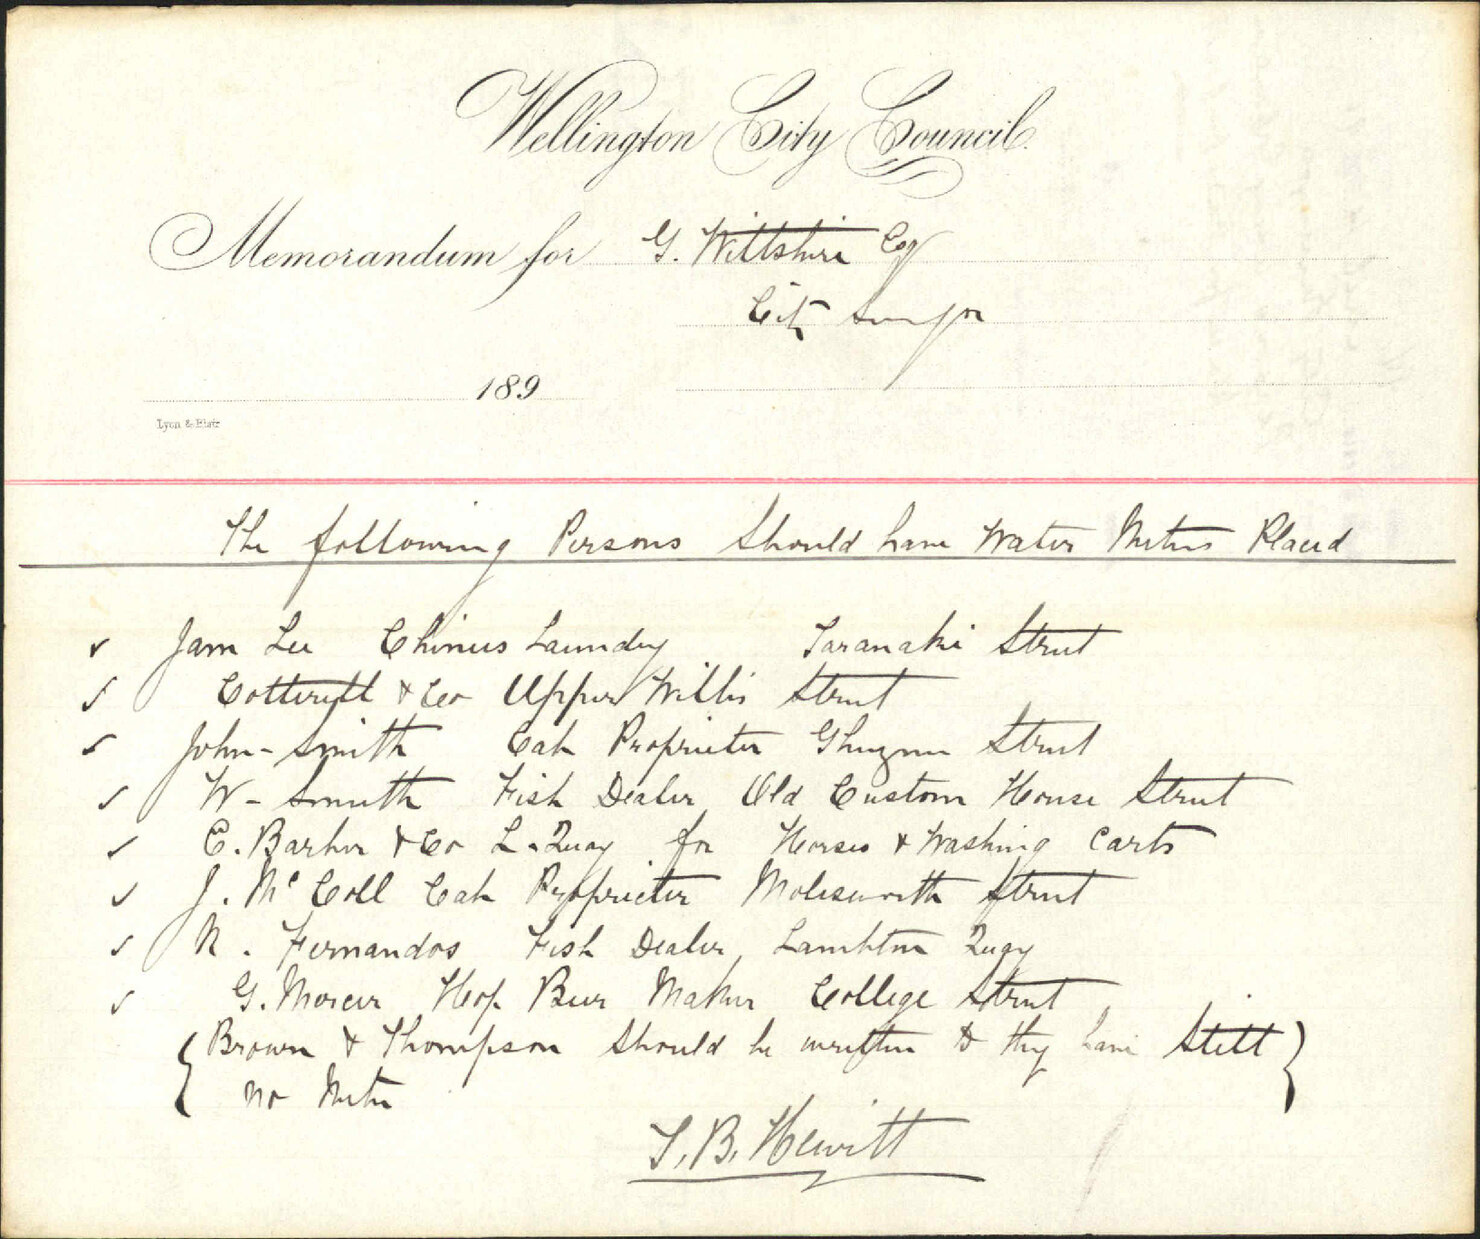 Wellington City Council.
Memorandum for G. Wiltshire Esq
City Surveyor
189
Lyon & Blair
The following Persons Should have Water Meters Placed
✓ Jam Lee Chinees Laundry Taranaki Street
✓ Cotterell & Co Upper Willis Street
✓ John - Smith Cab Proprieter Ghuznee Street
✓ W - Smith Fish Dealer Old Custom House Street
✓ E. Barker & Co L. Quay for Horses & Washing Carts
✓ J. Mc Coll Cab Proprieter Molesworth Street
✓ N. Fernandos Fish Dealer, Lambton Quay
✓ G. Mercer Hop Beer Maker College Street
{ Brown & Thompson Should be written to they have Still }
no Meter
T. B. Hewitt